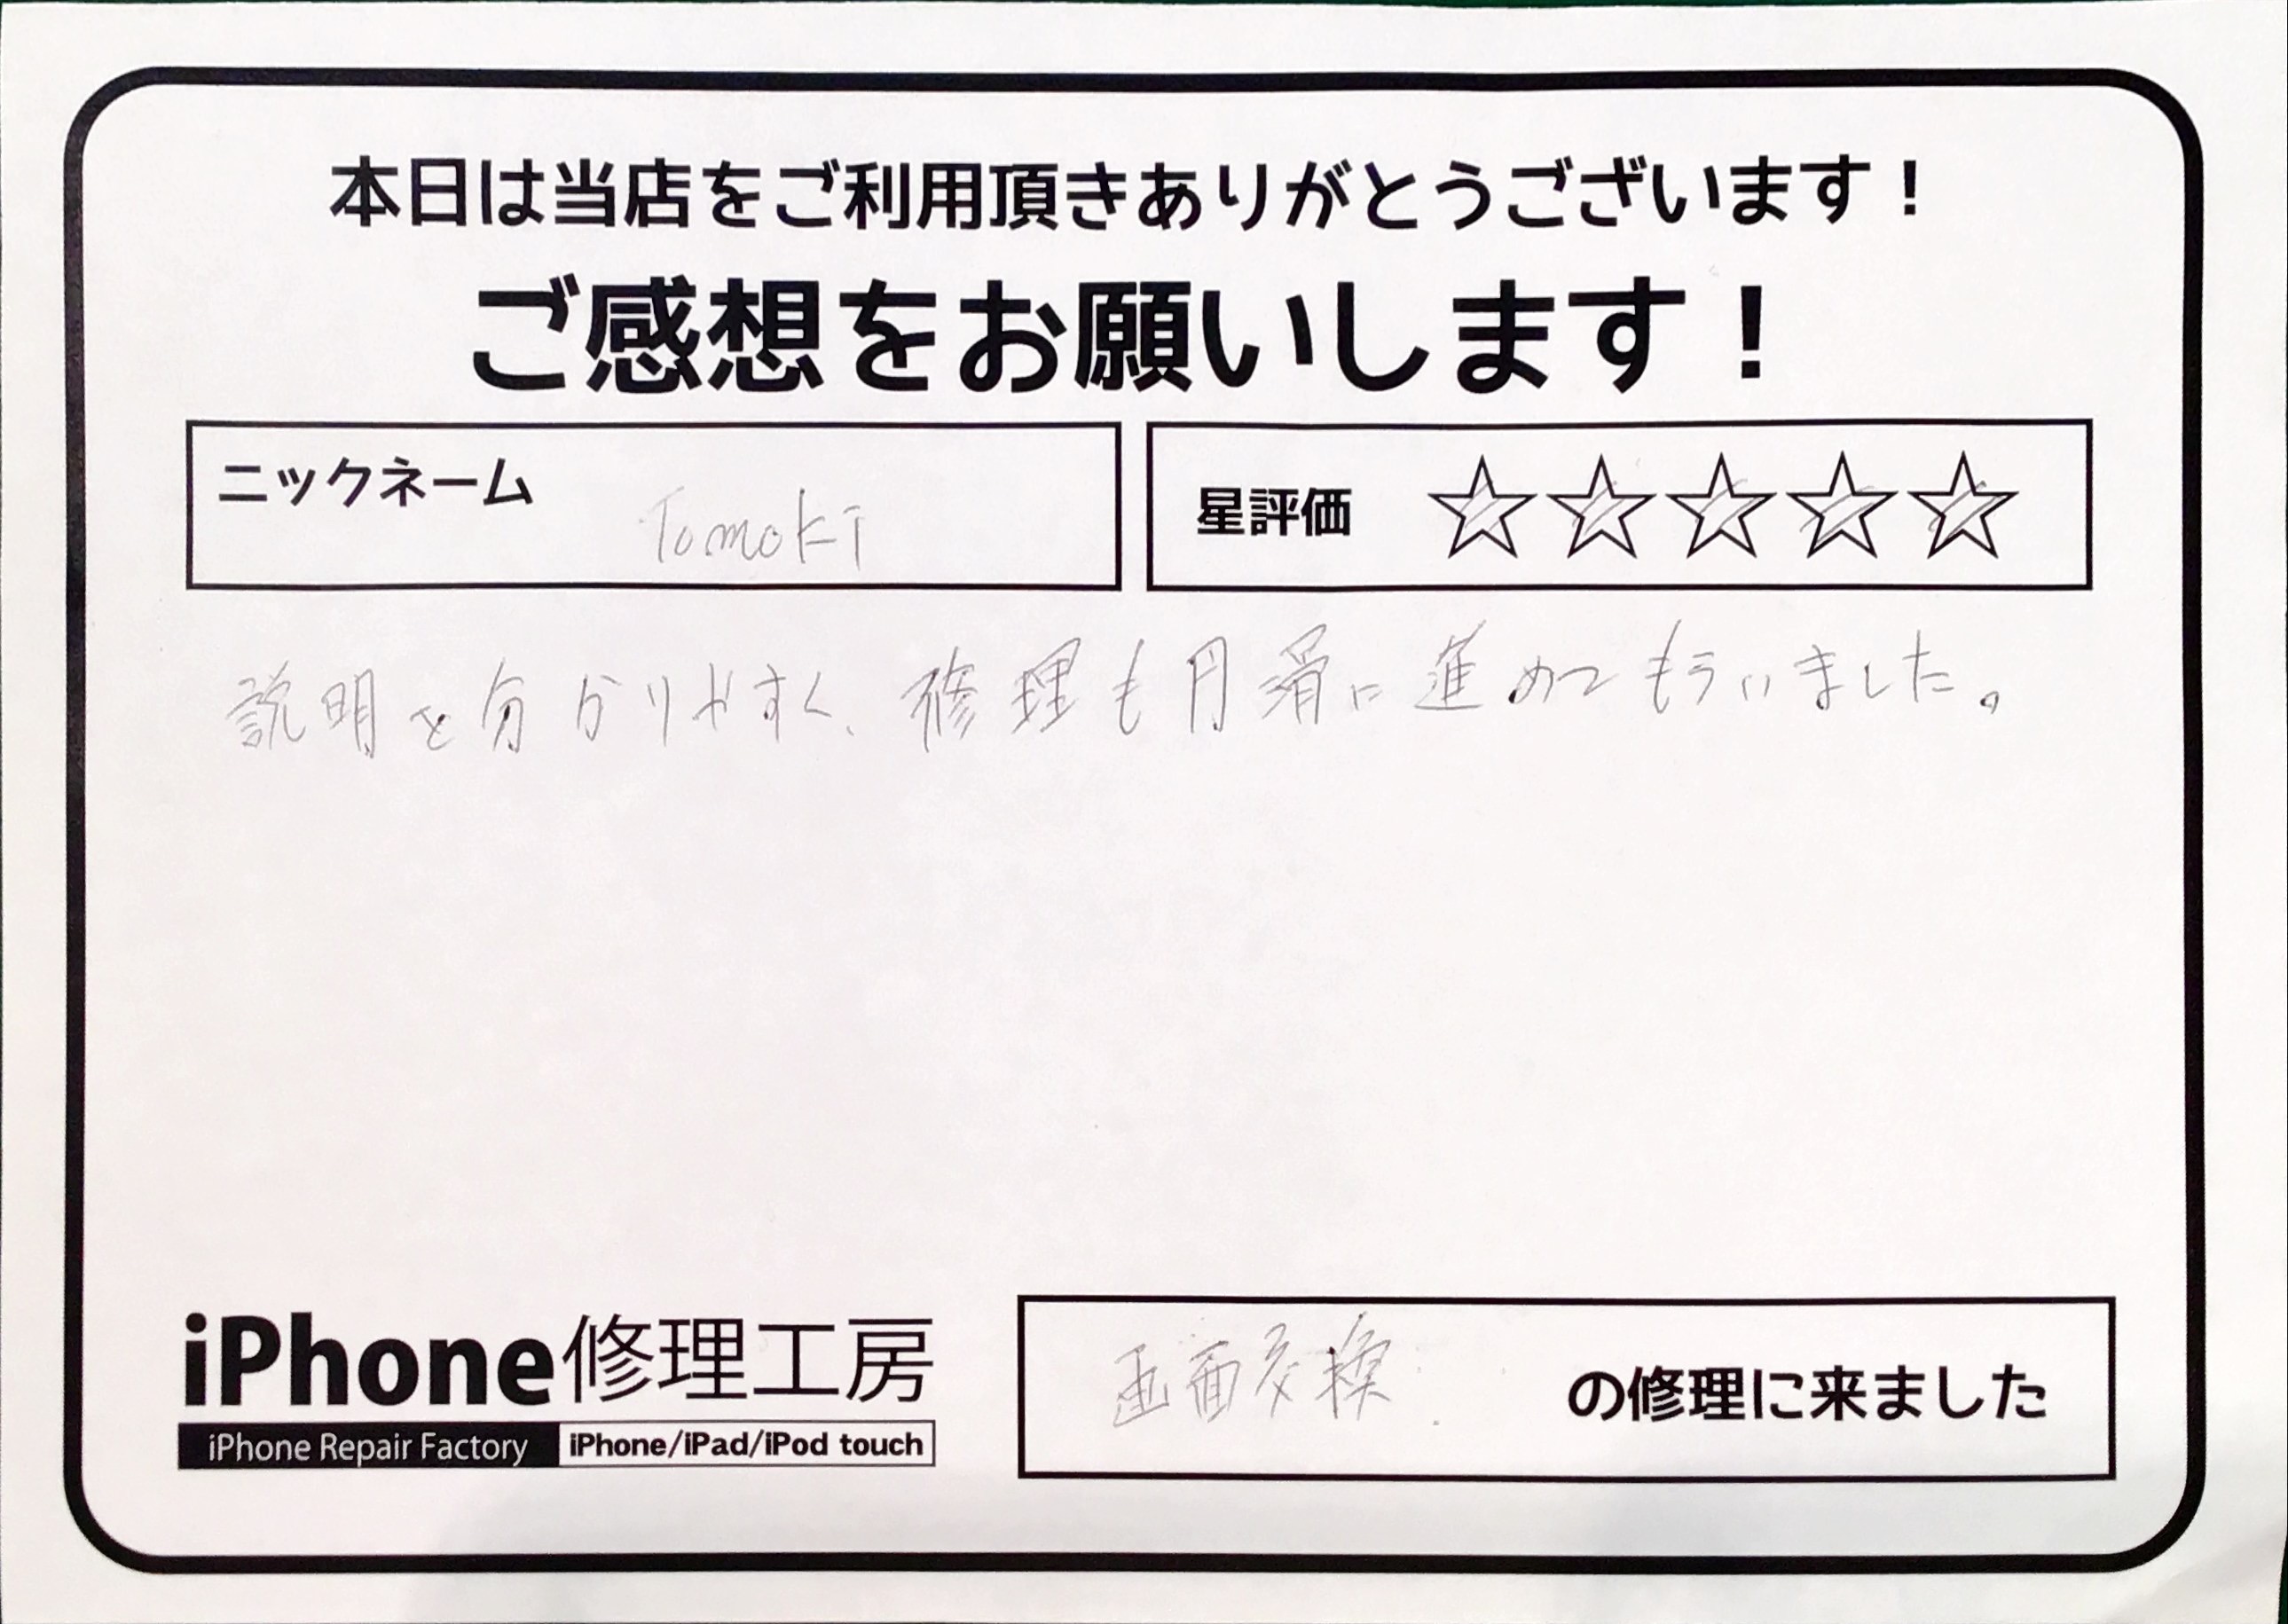 本日は当店をご利用頂きありがとうございます！
ご感想をお願いします！
ニックネーム Tomoki
星評価 ☆☆☆☆☆
説明を分かりやすく、修理も円滑に進めてもらいました。
iPhone修理工房
iPhone Repair Factory iPhone/iPad/iPod touch
画面交換 の修理に来ました